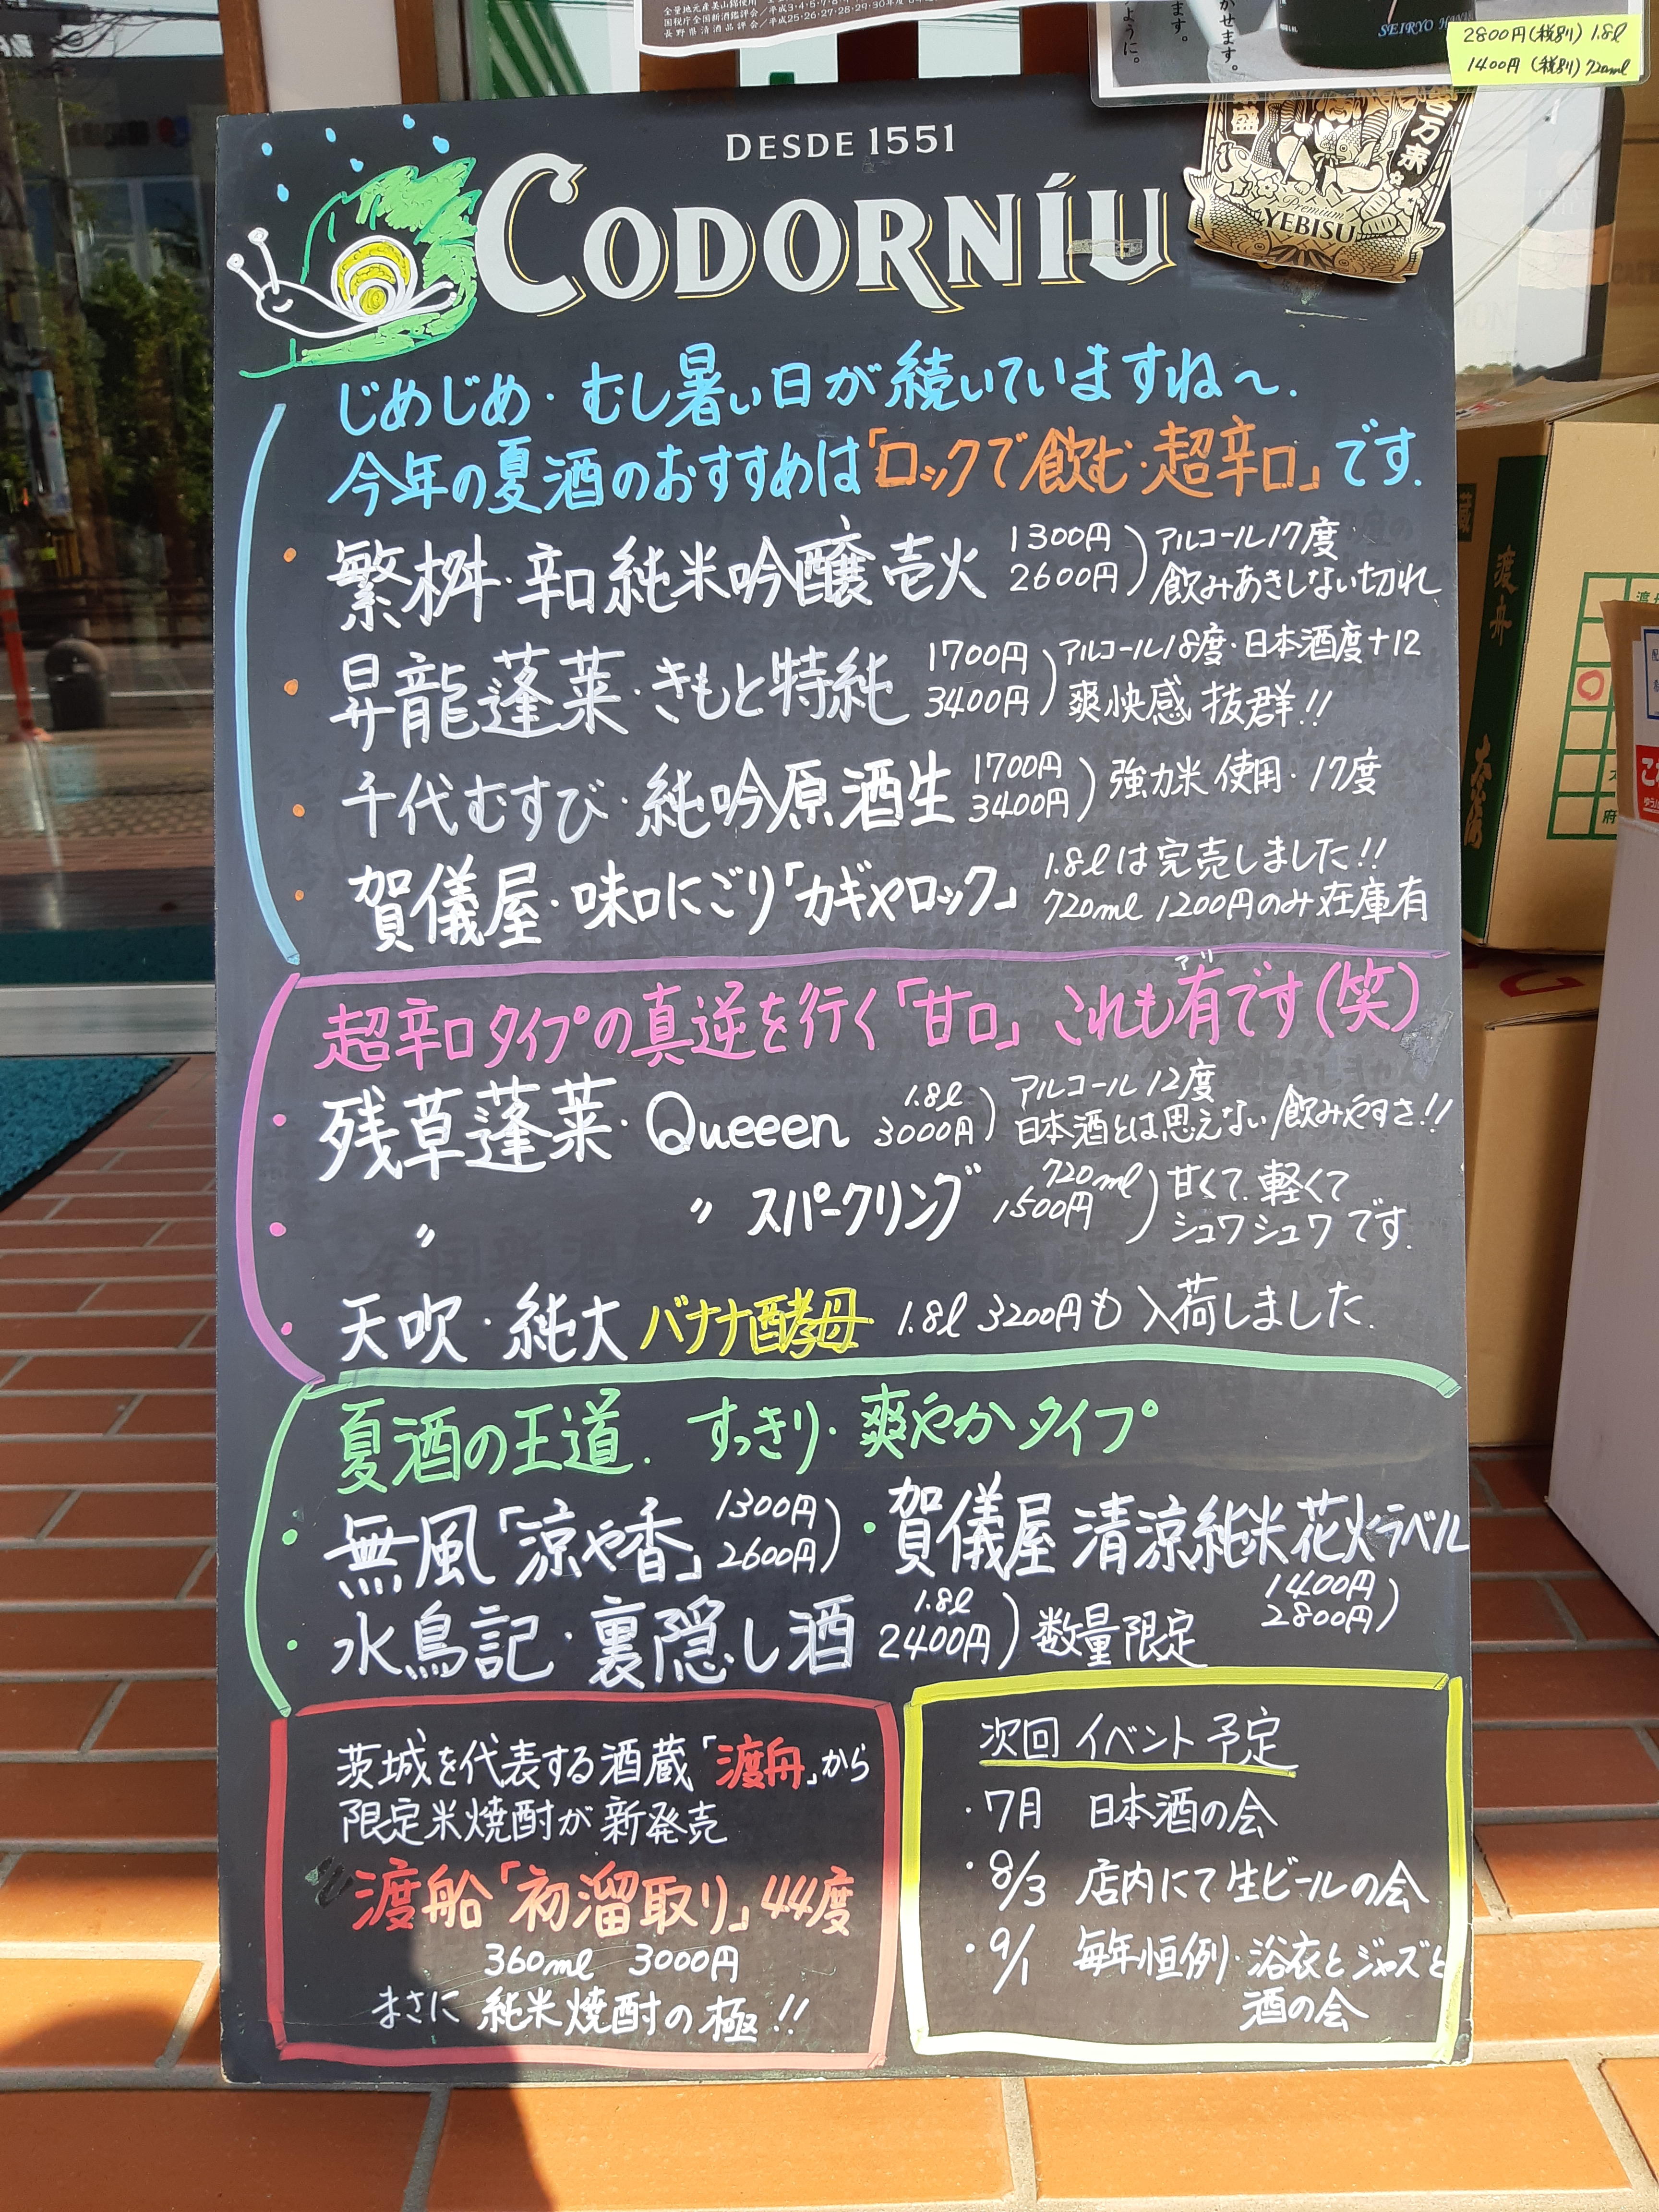 全量地元産美山錦使用
国税庁全国新酒鑑評会/平成25・26・27・28・29・30年度
長野県清酒品評会/平成3・4・5・6・7・8
かせます。
ます。
ように。
SEIRYO
2800円(税別) 1.8ℓ
1400円(税別) 720ml
DESDE 1551
CODORNÍU
千万来
盛
Premium
YEBISU
じめじめ・むし暑い日が続いていますね〜.
今年の夏酒のおすすめは「ロックで飲む・超辛口」です.
・繁桝・辛口純米吟醸壱火 1300円 2600円)アルコール17度 飲みあきしない切れ
・昇龍蓬莱・きもと特純 1700円 3400円)アルコール18度・日本酒度+12 爽快感 抜群!!
・千代むすび・純吟原酒生 1700円 3400円)強力米使用・17度
・賀儀屋・味口にごり「カギヤロック」 1.8ℓは完売しました!! 720ml 1200円のみ在庫有
アリ
超辛口タイプの真逆を行く「甘口」これも有です(笑)
・残草蓬莱・Queeen 1.8ℓ 3000円)アルコール12度 日本酒とは思えない飲みやすさ!!
・〃 〃 スパークリング 720ml 1500円)甘くて.軽くて シュワシュワです.
・天吹・純大 バナナ酵母 1.8ℓ 3200円も入荷しました.
夏酒の王道. すっきり・爽やかタイプ
・無風「涼や香」 1300円 2600円)・賀儀屋 清涼純米 花火ラベル 1400円 2800円)
・水鳥記・裏隠し酒 1.8ℓ 2400円)数量限定
茨城を代表する酒蔵「渡舟」から
限定米焼酎が新発売
渡船「初溜取り」44度
360ml 3000円
まさに 純米焼酎の極!!
次回 イベント予定
・7月 日本酒の会
・8/3 店内にて生ビールの会
・9/1 毎年恒例・浴衣とジャズと
酒の会
渡舟